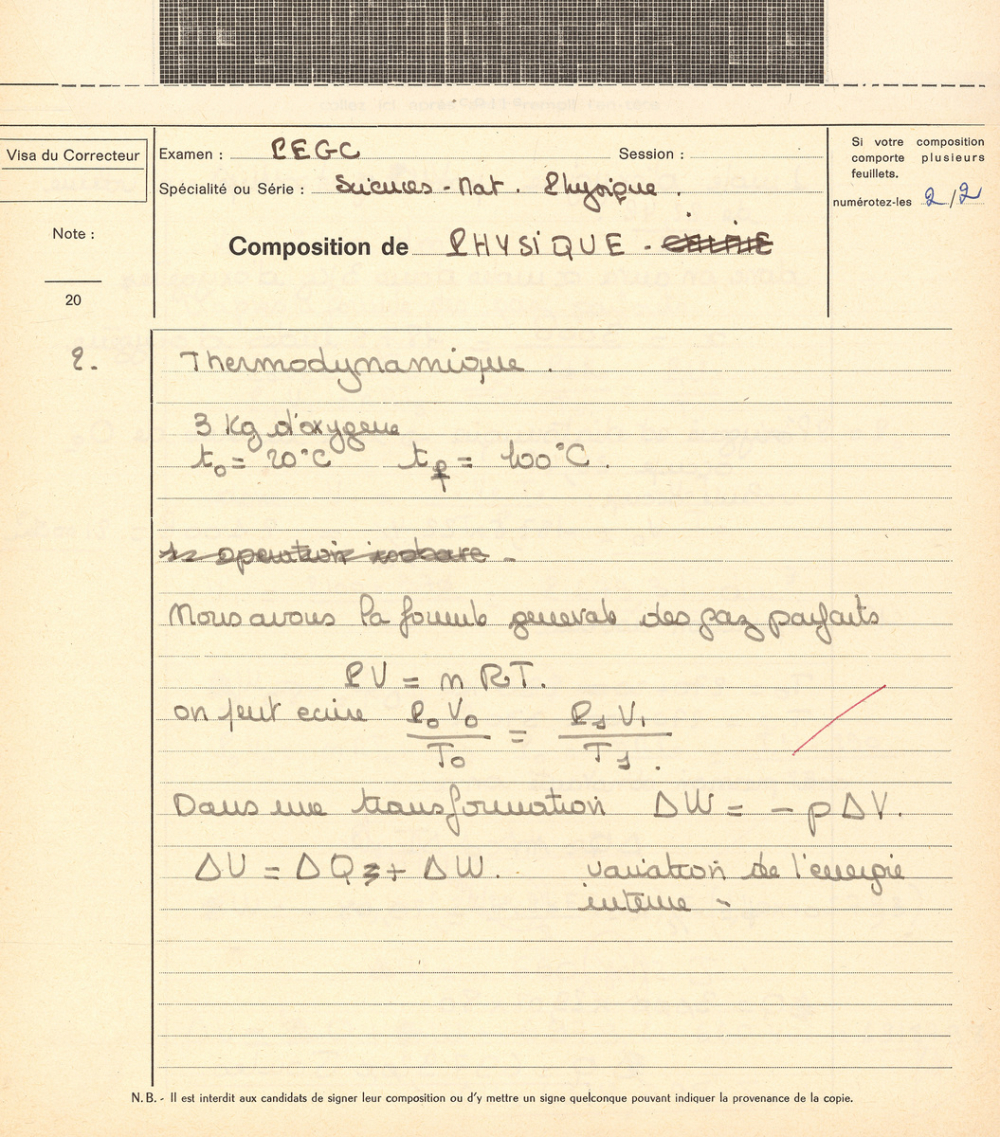 Visa du Correcteur
Note :
20
Examen : PEGC Session :
Spécialité ou Série : Sciences - Nat. Physique.
Composition de PHYSIQUE - CHIMIE
Si votre composition
comporte plusieurs
feuillets.
numérotez-les 2/2
2. Thermodynamique.
3 Kg d'oxygene
t₀ = 20°C t_f = 100°C.
1= operation isobare -
Nous avons la formule generale des gaz parfaits
PV = nRT.
on peut ecrire P₀V₀/T₀ = P₁V₁/T₁.
Dans une transformation ΔW = - pΔV.
ΔU = ΔQ + ΔW. variation de l'energie
interne -
N.B. - Il est interdit aux candidats de signer leur composition ou d'y mettre un signe quelconque pouvant indiquer la provenance de la copie.